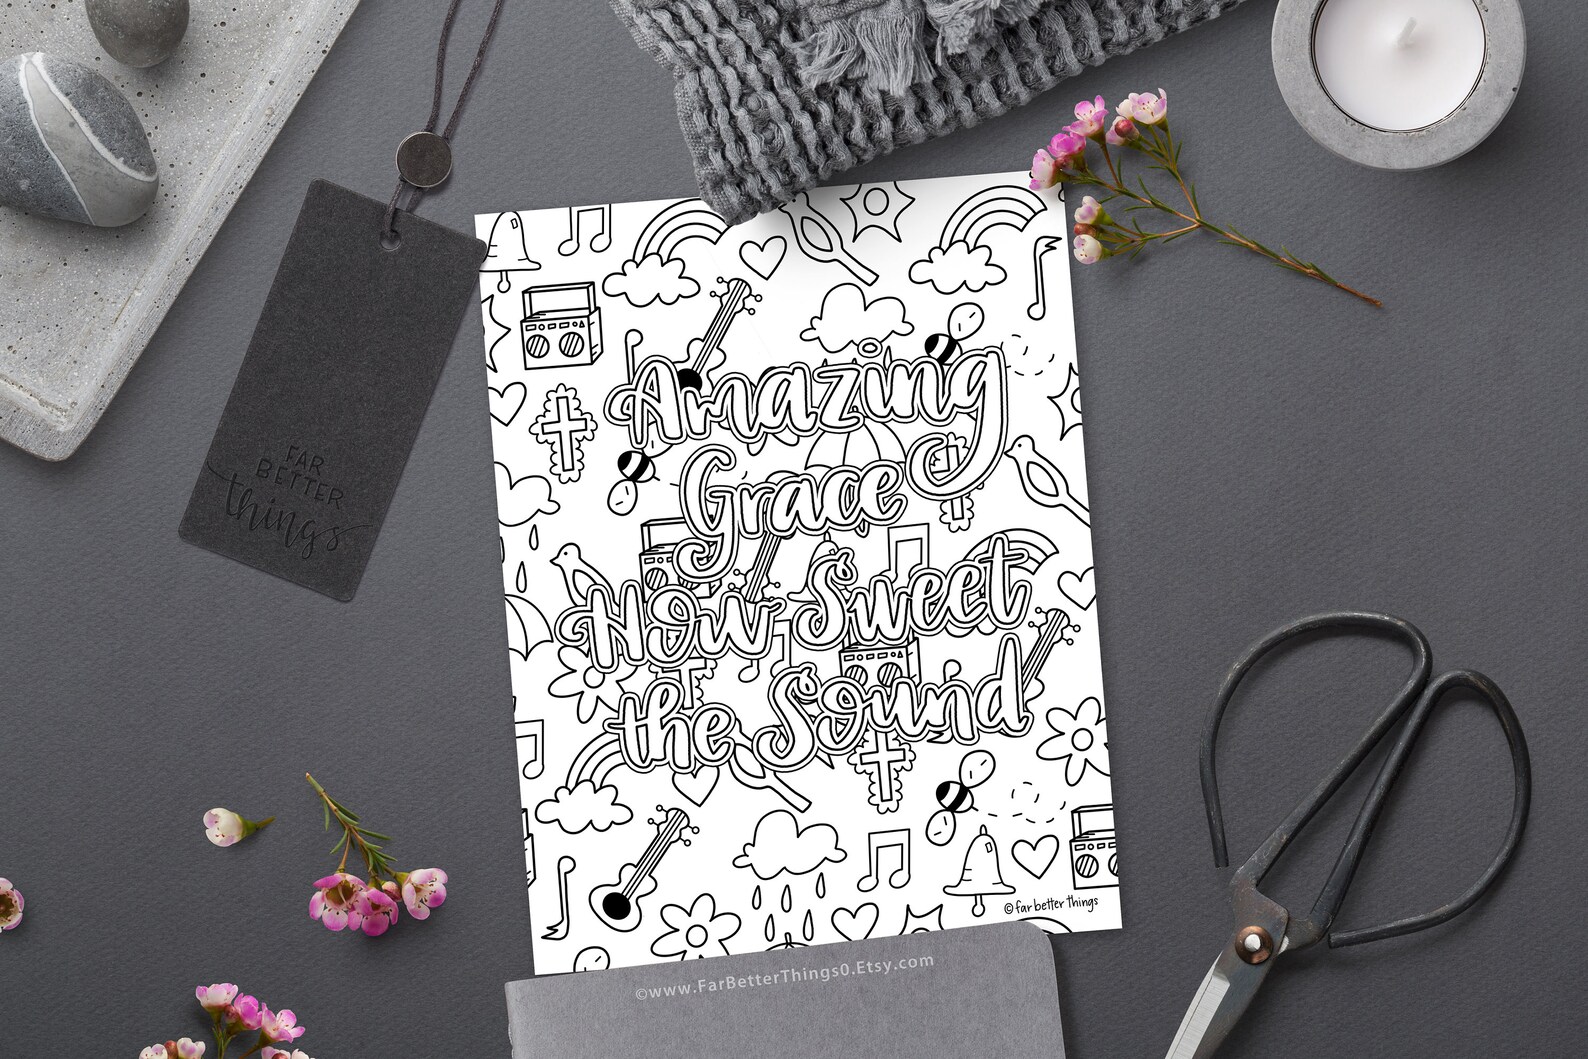 FAR
BETTER
things
Amazing
Grace
How Sweet
the Sound
© far better things
©www.FarBetterThings0.Etsy.com